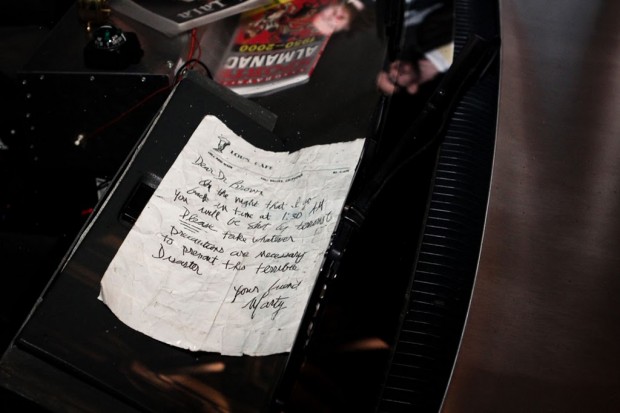 ALMANAC
1950-2000
LOU'S CAFE
Dear Dr. Brown
On the night that I go
back in time at 1:30 AM
You will be shot by terrorists
Please take whatever
precautions are necessary
to prevent this terrible
Disaster
Your friend
Marty